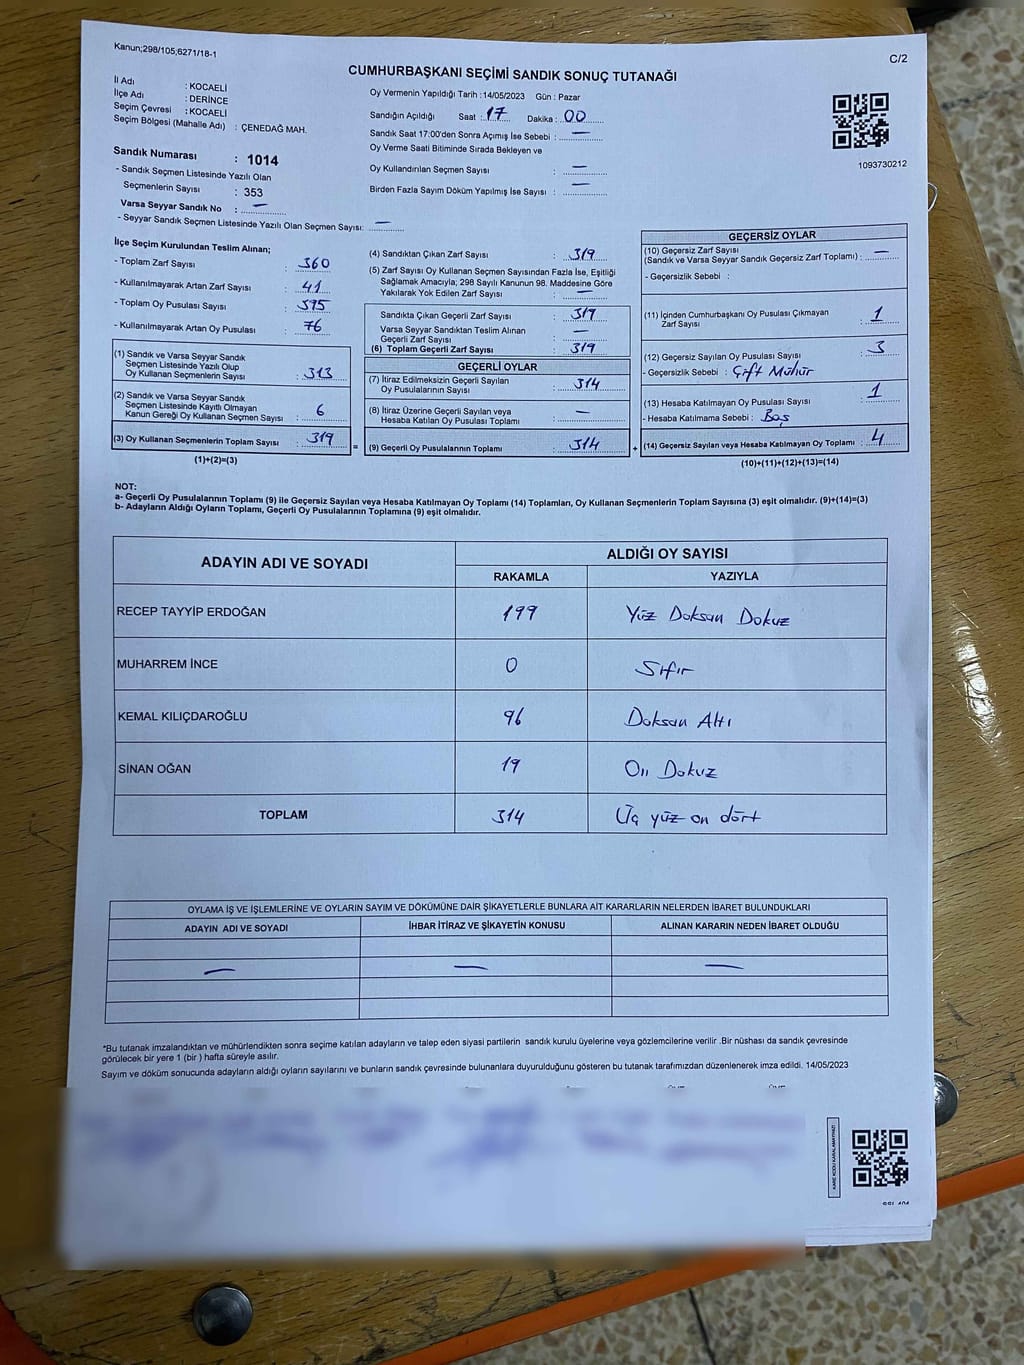 Kanun;298/105,6271/18-1
C/2
CUMHURBAŞKANI SEÇİMİ SANDIK SONUÇ TUTANAĞI
İl Adı : KOCAELİ
İlçe Adı : DERİNCE
Seçim Çevresi : KOCAELİ
Seçim Bölgesi (Mahalle Adı) : ÇENEDAĞ MAH.
Oy Vermenin Yapıldığı Tarih :14/05/2023 Gün : Pazar
Sandığın Açıldığı Saat : 17 Dakika : 00
Sandık Saat 17:00'den Sonra Açımış İse Sebebi : —
Oy Verme Saati Bitiminde Sırada Bekleyen ve
Oy Kullandırılan Seçmen Sayısı : —
Birden Fazla Sayım Döküm Yapılmış İse Sayısı : —
1093730212
Sandık Numarası : 1014
- Sandık Seçmen Listesinde Yazılı Olan
Seçmenlerin Sayısı : 353
Varsa Seyyar Sandık No : —
- Seyyar Sandık Seçmen Listesinde Yazılı Olan Seçmen Sayısı: —
İlçe Seçim Kurulundan Teslim Alınan;
- Toplam Zarf Sayısı : 360
- Kullanılmayarak Artan Zarf Sayısı : 41
- Toplam Oy Pusulası Sayısı : 395
- Kullanılmayarak Artan Oy Pusulası : 76
(1) Sandık ve Varsa Seyyar Sandık
Seçmen Listesinde Yazılı Olup
Oy Kullanan Seçmenlerin Sayısı : 313
(2) Sandık ve Varsa Seyyar Sandık
Seçmen Listesinde Kayıtlı Olmayan
Kanun Gereği Oy Kullanan Seçmen Sayısı : 6
(3) Oy Kullanan Seçmenlerin Toplam Sayısı : 319
(1)+(2)=(3)
(4) Sandıktan Çıkan Zarf Sayısı : 319
(5) Zarf Sayısı Oy Kullanan Seçmen Sayısından Fazla İse, Eşitliği
Sağlamak Amacıyla; 298 Sayılı Kanunun 98. Maddesine Göre
Yakılarak Yok Edilen Zarf Sayısı : —
Sandıkta Çıkan Geçerli Zarf Sayısı : 319
Varsa Seyyar Sandıktan Teslim Alınan
Geçerli Zarf Sayısı : —
(6) Toplam Geçerli Zarf Sayısı : 319
GEÇERLİ OYLAR
(7) İtiraz Edilmeksizin Geçerli Sayılan
Oy Pusulalarının Sayısı : 314
(8) İtiraz Üzerine Geçerli Sayılan veya
Hesaba Katılan Oy Pusulası Toplamı : —
= (9) Geçerli Oy Pusulalarının Toplamı : 314 +
GEÇERSİZ OYLAR
(10) Geçersiz Zarf Sayısı
(Sandık ve Varsa Seyyar Sandık Geçersiz Zarf Toplamı) : —
- Geçersizlik Sebebi :
(11) İçinden Cumhurbaşkanı Oy Pusulası Çıkmayan
Zarf Sayısı : 1
(12) Geçersiz Sayılan Oy Pusulası Sayısı : 3
- Geçersizlik Sebebi : Çift Mühür
(13) Hesaba Katılmayan Oy Pusulası Sayısı : 1
- Hesaba Katılmama Sebebi : Boş
(14) Geçersiz Sayılan veya Hesaba Katılmayan Oy Toplamı : 4
(10)+(11)+(12)+(13)=(14)
NOT:
a- Geçerli Oy Pusulalarının Toplamı (9) ile Geçersiz Sayılan veya Hesaba Katılmayan Oy Toplamı (14) Toplamları, Oy Kullanan Seçmenlerin Toplam Sayısına (3) eşit olmalıdır. (9)+(14)=(3)
b- Adayların Aldığı Oyların Toplamı, Geçerli Oy Pusulalarının Toplamına (9) eşit olmalıdır.
ADAYIN ADI VE SOYADI ALDIĞI OY SAYISI
RAKAMLA YAZIYLA
RECEP TAYYİP ERDOĞAN 199 Yüz Doksan Dokuz
MUHARREM İNCE 0 Sıfır
KEMAL KILIÇDAROĞLU 96 Doksan Altı
SİNAN OĞAN 19 On Dokuz
TOPLAM 314 Üç yüz on dört
OYLAMA İŞ VE İŞLEMLERİNE VE OYLARIN SAYIM VE DÖKÜMÜNE DAİR ŞİKAYETLERLE BUNLARA AİT KARARLARIN NELERDEN İBARET BULUNDUKLARI
ADAYIN ADI VE SOYADI İHBAR İTİRAZ VE ŞİKAYETİN KONUSU ALINAN KARARIN NEDEN İBARET OLDUĞU
— — —
*Bu tutanak imzalandıktan ve mühürlendikten sonra seçime katılan adayların ve talep eden siyasi partilerin sandık kurulu üyelerine veya gözlemcilerine verilir .Bir nüshası da sandık çevresinde
görülecek bir yere 1 (bir ) hafta süreyle asılır.
Sayım ve döküm sonucunda adayların aldığı oyların sayılarını ve bunların sandık çevresinde bulunanlara duyurulduğunu gösteren bu tutanak tarafımızdan düzenlenerek imza edildi. 14/05/2023
KARE KODU KARALAMAYINIZ!